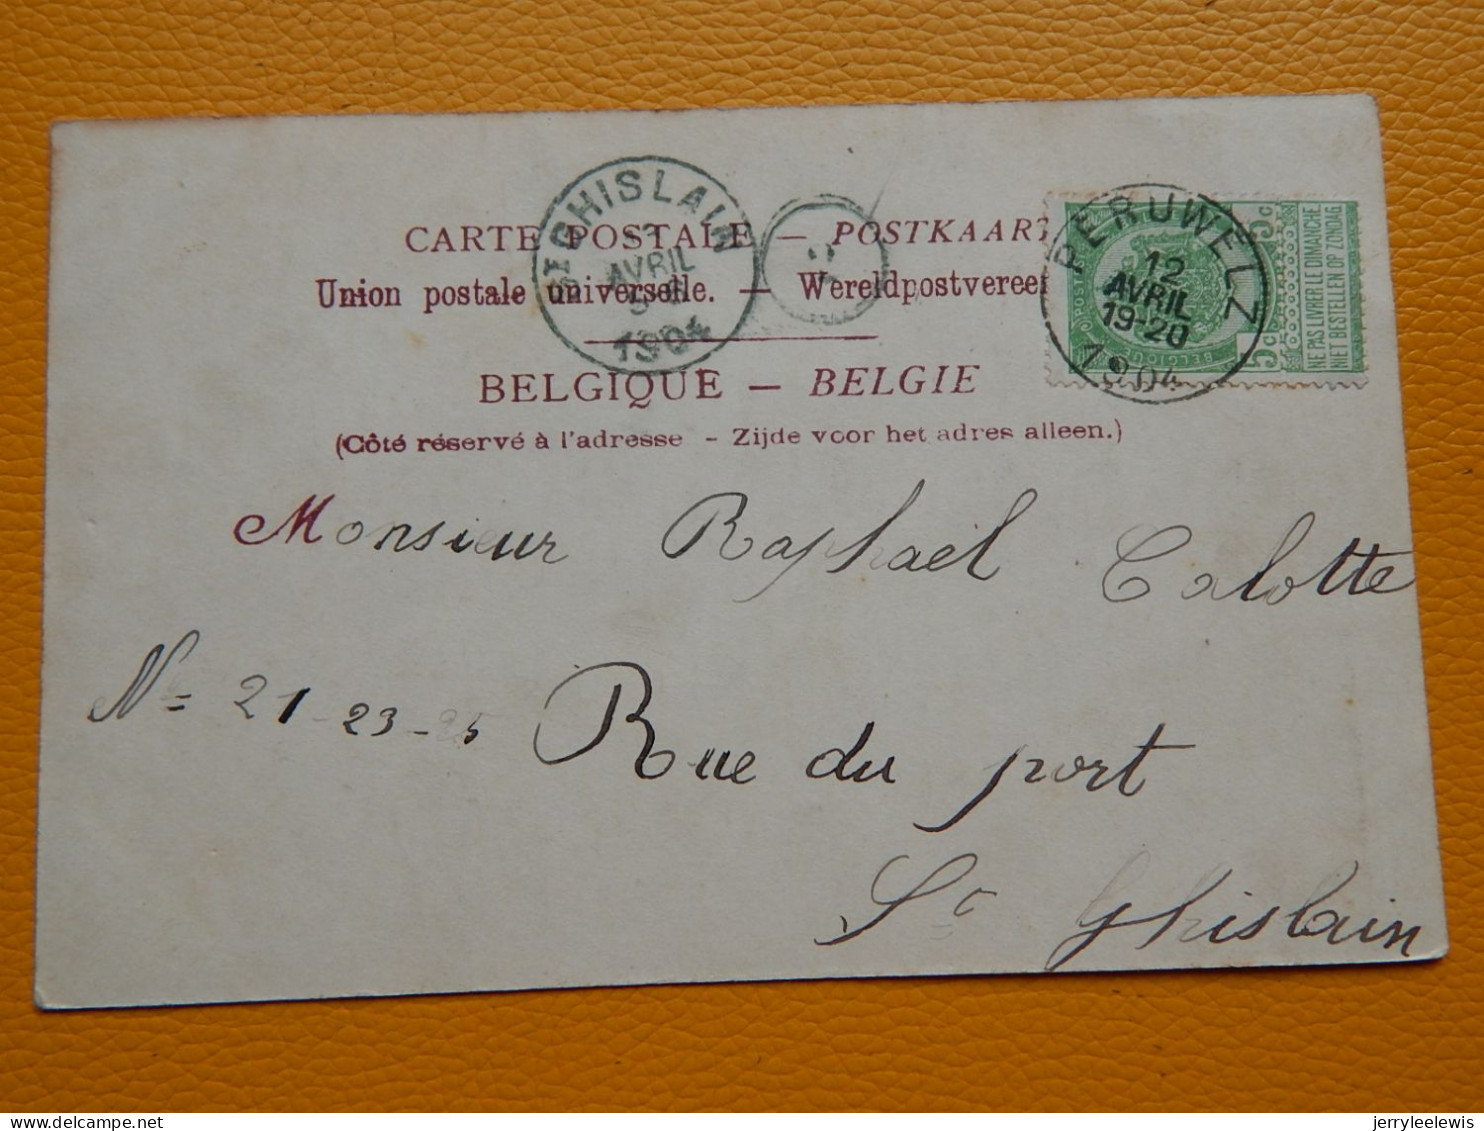 CARTE POSTALE — POSTKAART
Union postale universelle. — Wereldpostvereen
BELGIQUE — BELGIE
(Côté réservé à l'adresse - Zijde voor het adres alleen.)
ST GHISLAIN
AVRIL
1904
PERUWELZ
12
AVRIL
19-20
1904
POST
BELGIQUE
5c
5c
NE PAS LIVRER LE DIMANCHE
NIET BESTELLEN OP ZONDAG
Monsieur Raphaël Calotte
No 21-23-25 Rue du port
St Ghislain
jerryleelewis